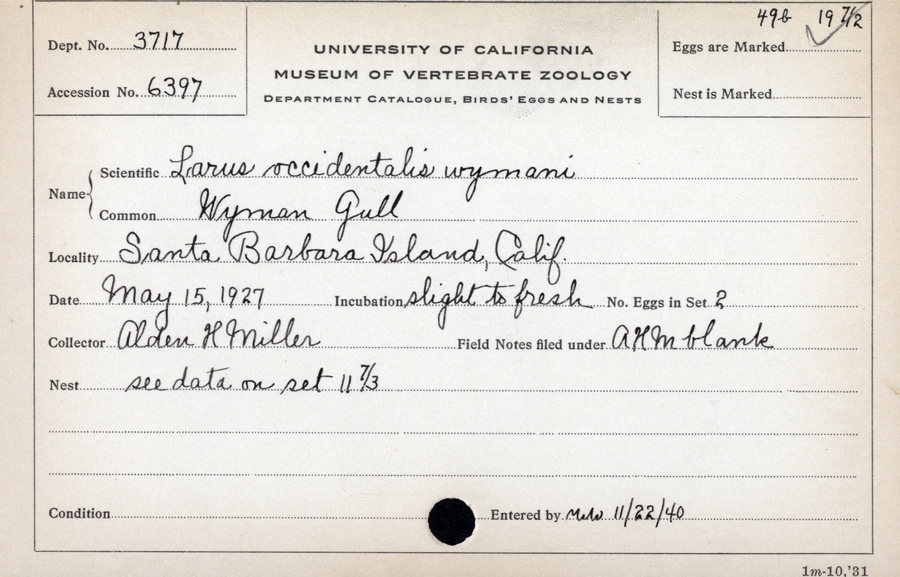 49b 19 7/2
Dept. No. 3717
UNIVERSITY OF CALIFORNIA
Eggs are Marked
MUSEUM OF VERTEBRATE ZOOLOGY
Accession No. 6397
DEPARTMENT CATALOGUE, BIRDS' EGGS AND NESTS
Nest is Marked
Name Scientific Larus occidentalis wymani
Common Wyman Gull
Locality Santa Barbara Island, Calif.
Date May 15, 1927 Incubation slight to fresh No. Eggs in Set 2
Collector Alden H Miller Field Notes filed under AHM blank
Nest see data on set 11 7/3
Condition Entered by 11/22/40
1m-10,'31